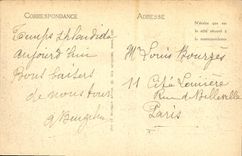 CORRESPONDANCE
Temps splendide
aujourd'hui
Bons baisers
de nous tous
ADRESSE
N'écrire que sur
le côté réservé à
la correspondance
Mr Louis Bourges
11 Cité Lemière
Rue de Belleville
Paris